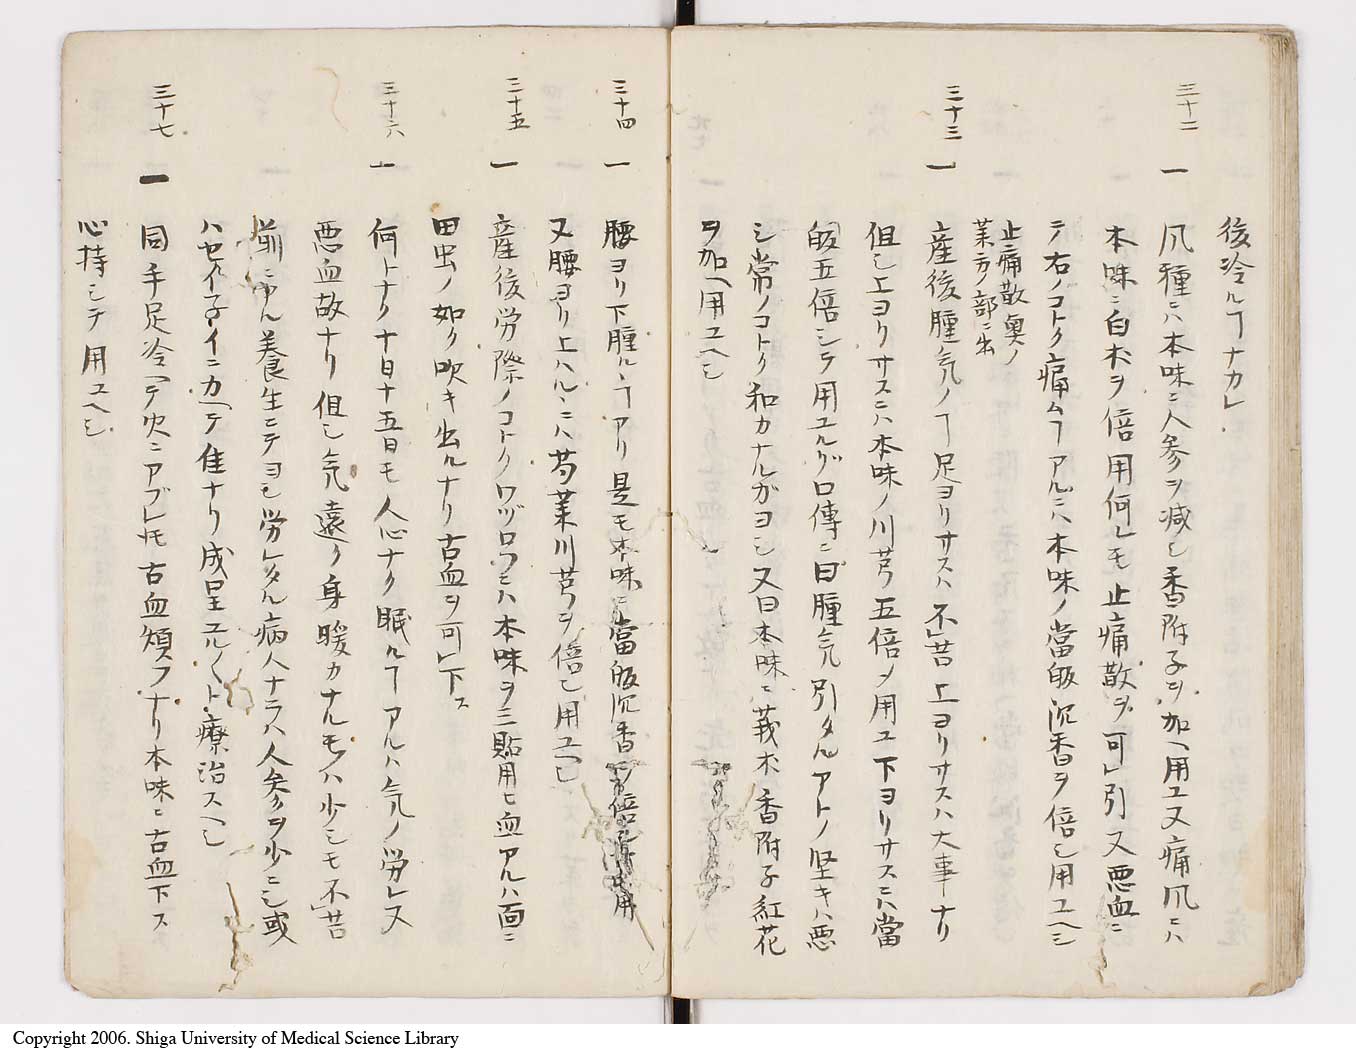 後冷ルヿナカレ
三十二
一 凨種ニハ本味ニ人参ヲ減シ香附子ヲ加ヘ用ユ又痛凨ニハ
本味ニ白朮ヲ倍用何レモ止痛散ヲ可引又悪血ニ
テ右ノコトク痛ムヿアルニハ本味ノ當皈沉香ヲ倍シ用ユヘシ
止痛散奥ノ
薬方ノ部ニ出
三十三
一 産後腫気ノヿ足ヨリサスハ不苦上ヨリサスハ大事ナリ
但シ上ヨリサスニハ本味ノ川芎五倍メ用ユ下ヨリサスニハ當
皈五倍シテ用ユルゾ口傳ニ曰腫気引タルアトノ坚キハ悪
シ常ノコトク和カナルガヨシ又曰本味ニ莪朮香附子紅花
ヲ加ヘ用ユヘシ
三十四
一 腰ヨリ下腫ルヽヿアリ是モ本味ニ當皈沉香ヲ倍シ用
又腰ヨリ上ハルヽニハ芍薬川芎ヲ倍シ用ユヘシ
三十五
一 産後労際ノコトクワヅロフニハ本味ヲ三貼用ヒ血アルハ面ニ
田虫ノ如ク吹キ出ルナリ古血ヲ可下ス
三十六
一 何トナク十日十五日モ人心ナク眠ルヿアルハ気ノ労レ又
悪血故ナリ但シ気遠ク身暖カナルモノハ少シモ不苦
養生ニテヨシ労レタル病人ナラハ人参ヲ少ニシ或
ハセイ子イニカヘテ佳ナリ成呈ユル〱ト療治スヘシ
三十七
一 同手足冷ヘテ火ニアブレ𪜈古血煩フナリ本味ニ古血下ス
心持シテ用ユヘシ